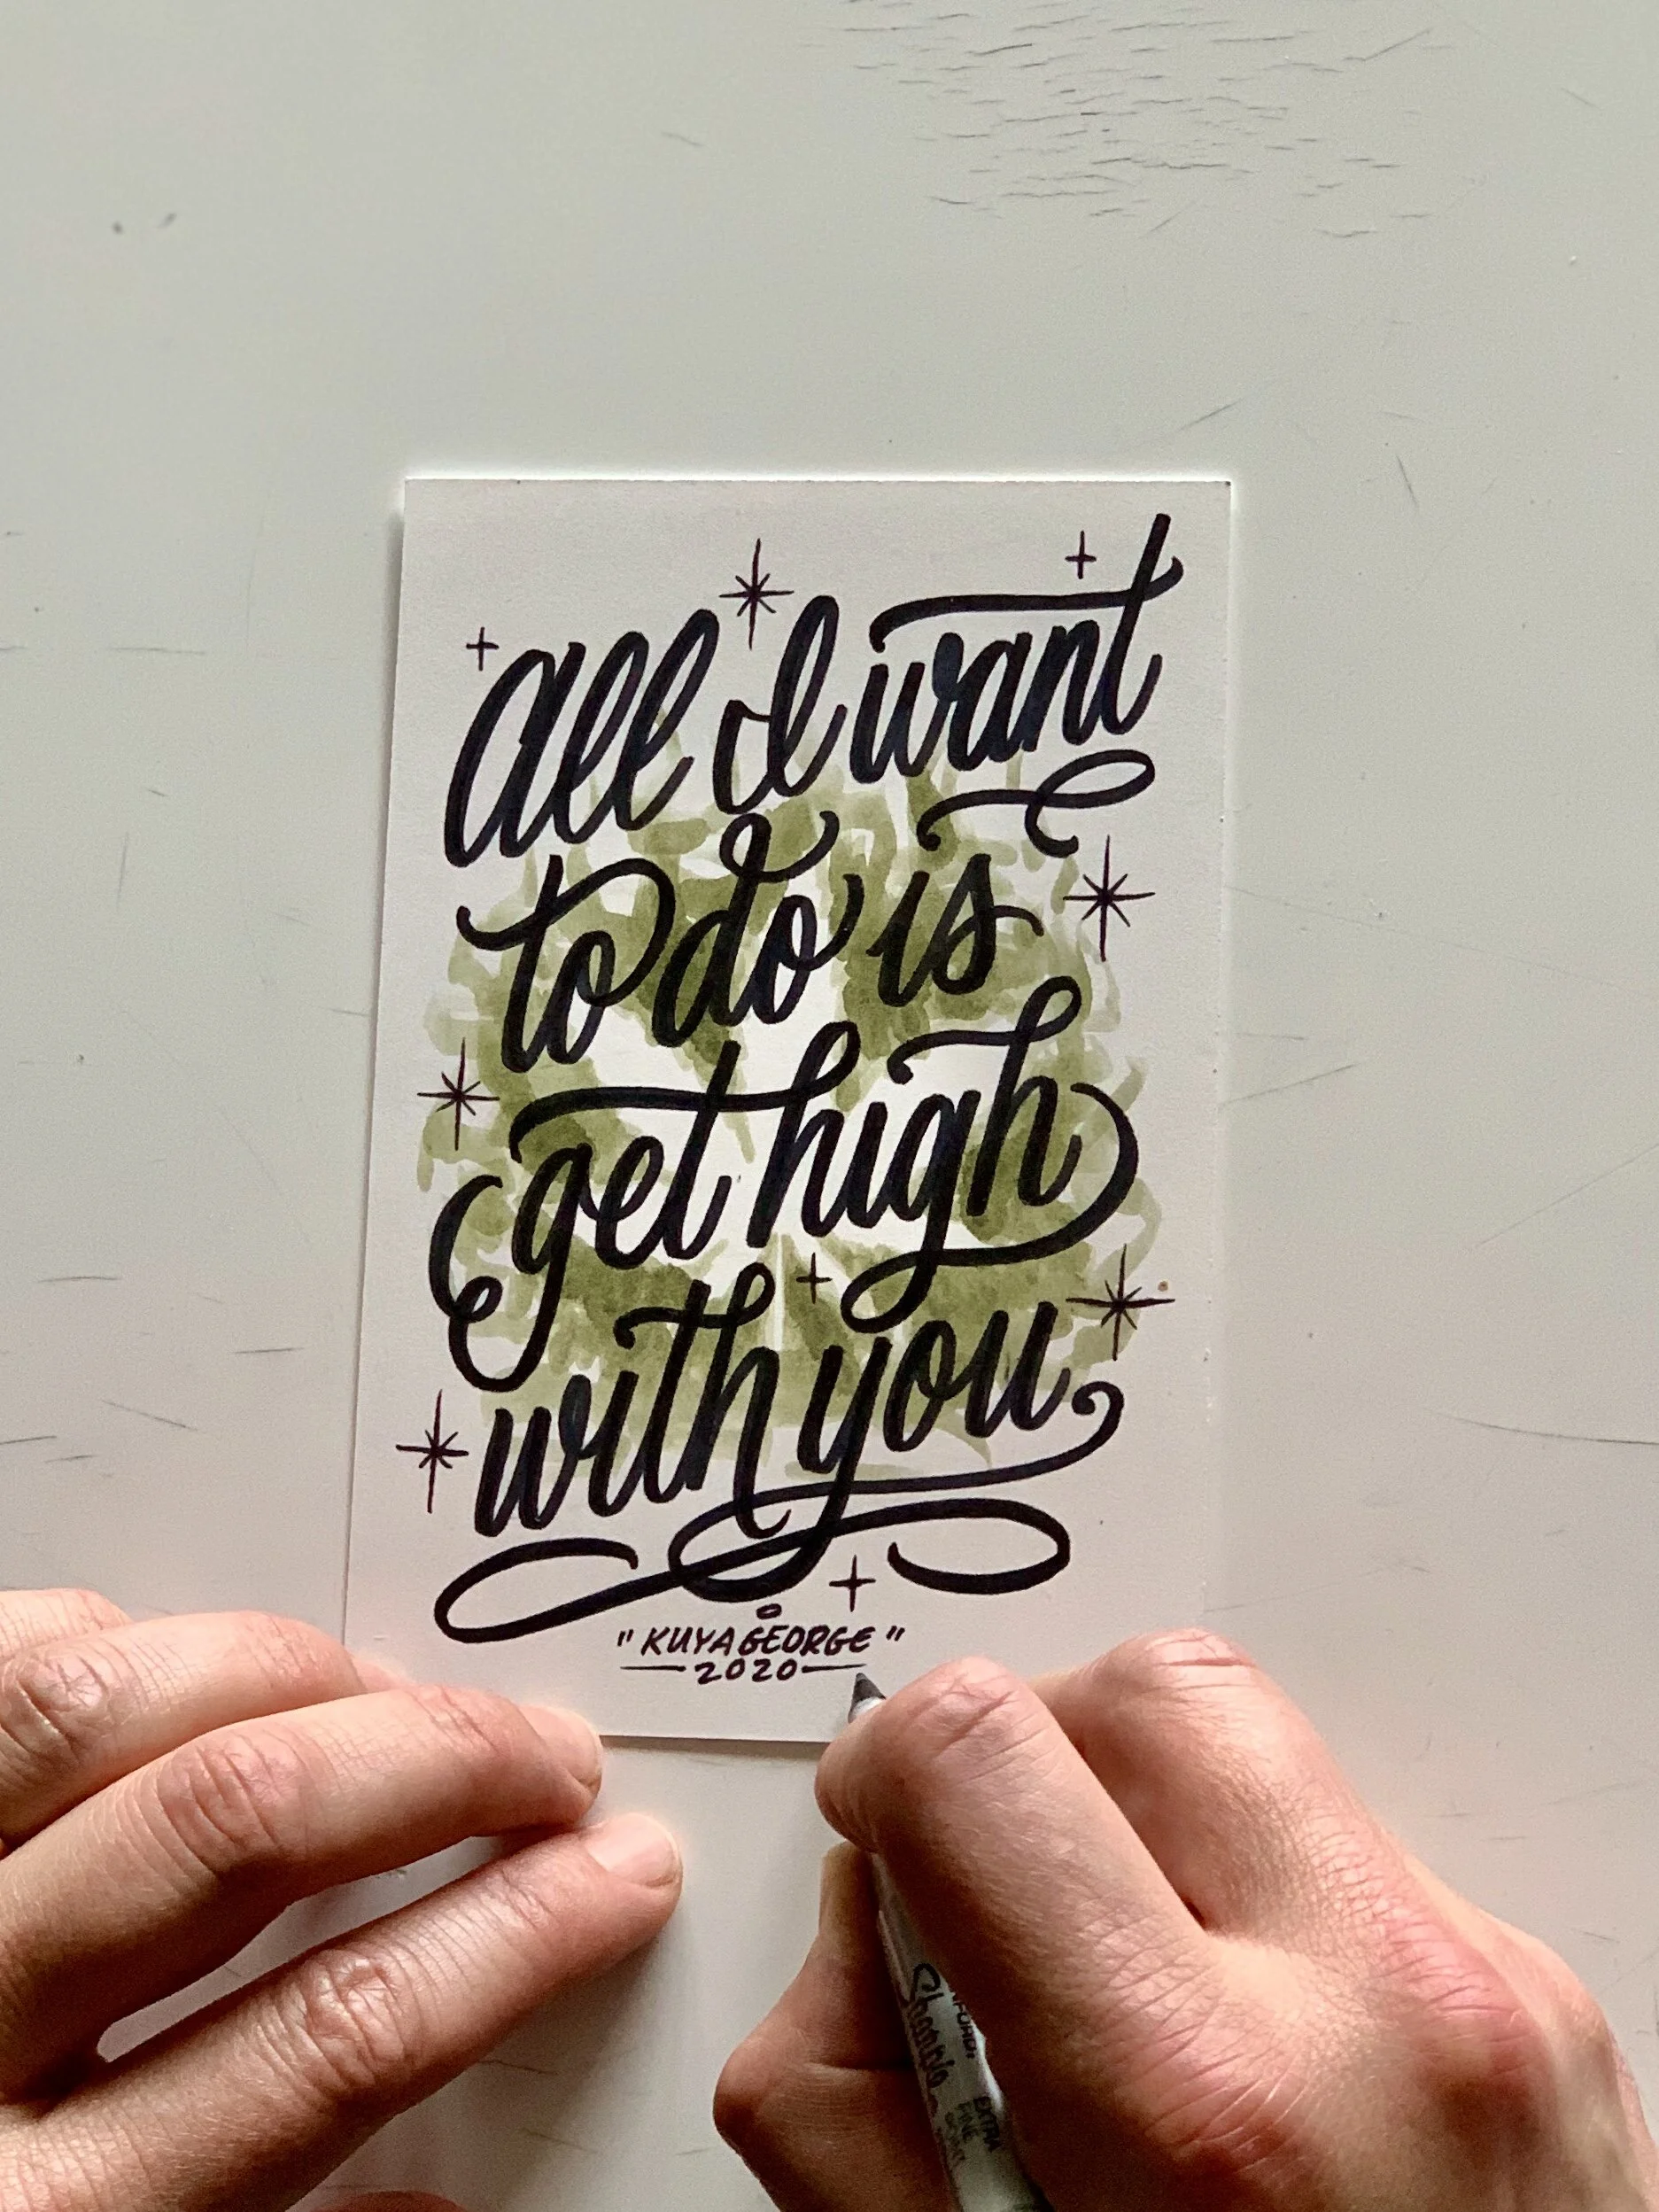 All I want
to do is
get high
with you
"KUYAGEORGE"
2020
Sharpie
EXTRA
FINE